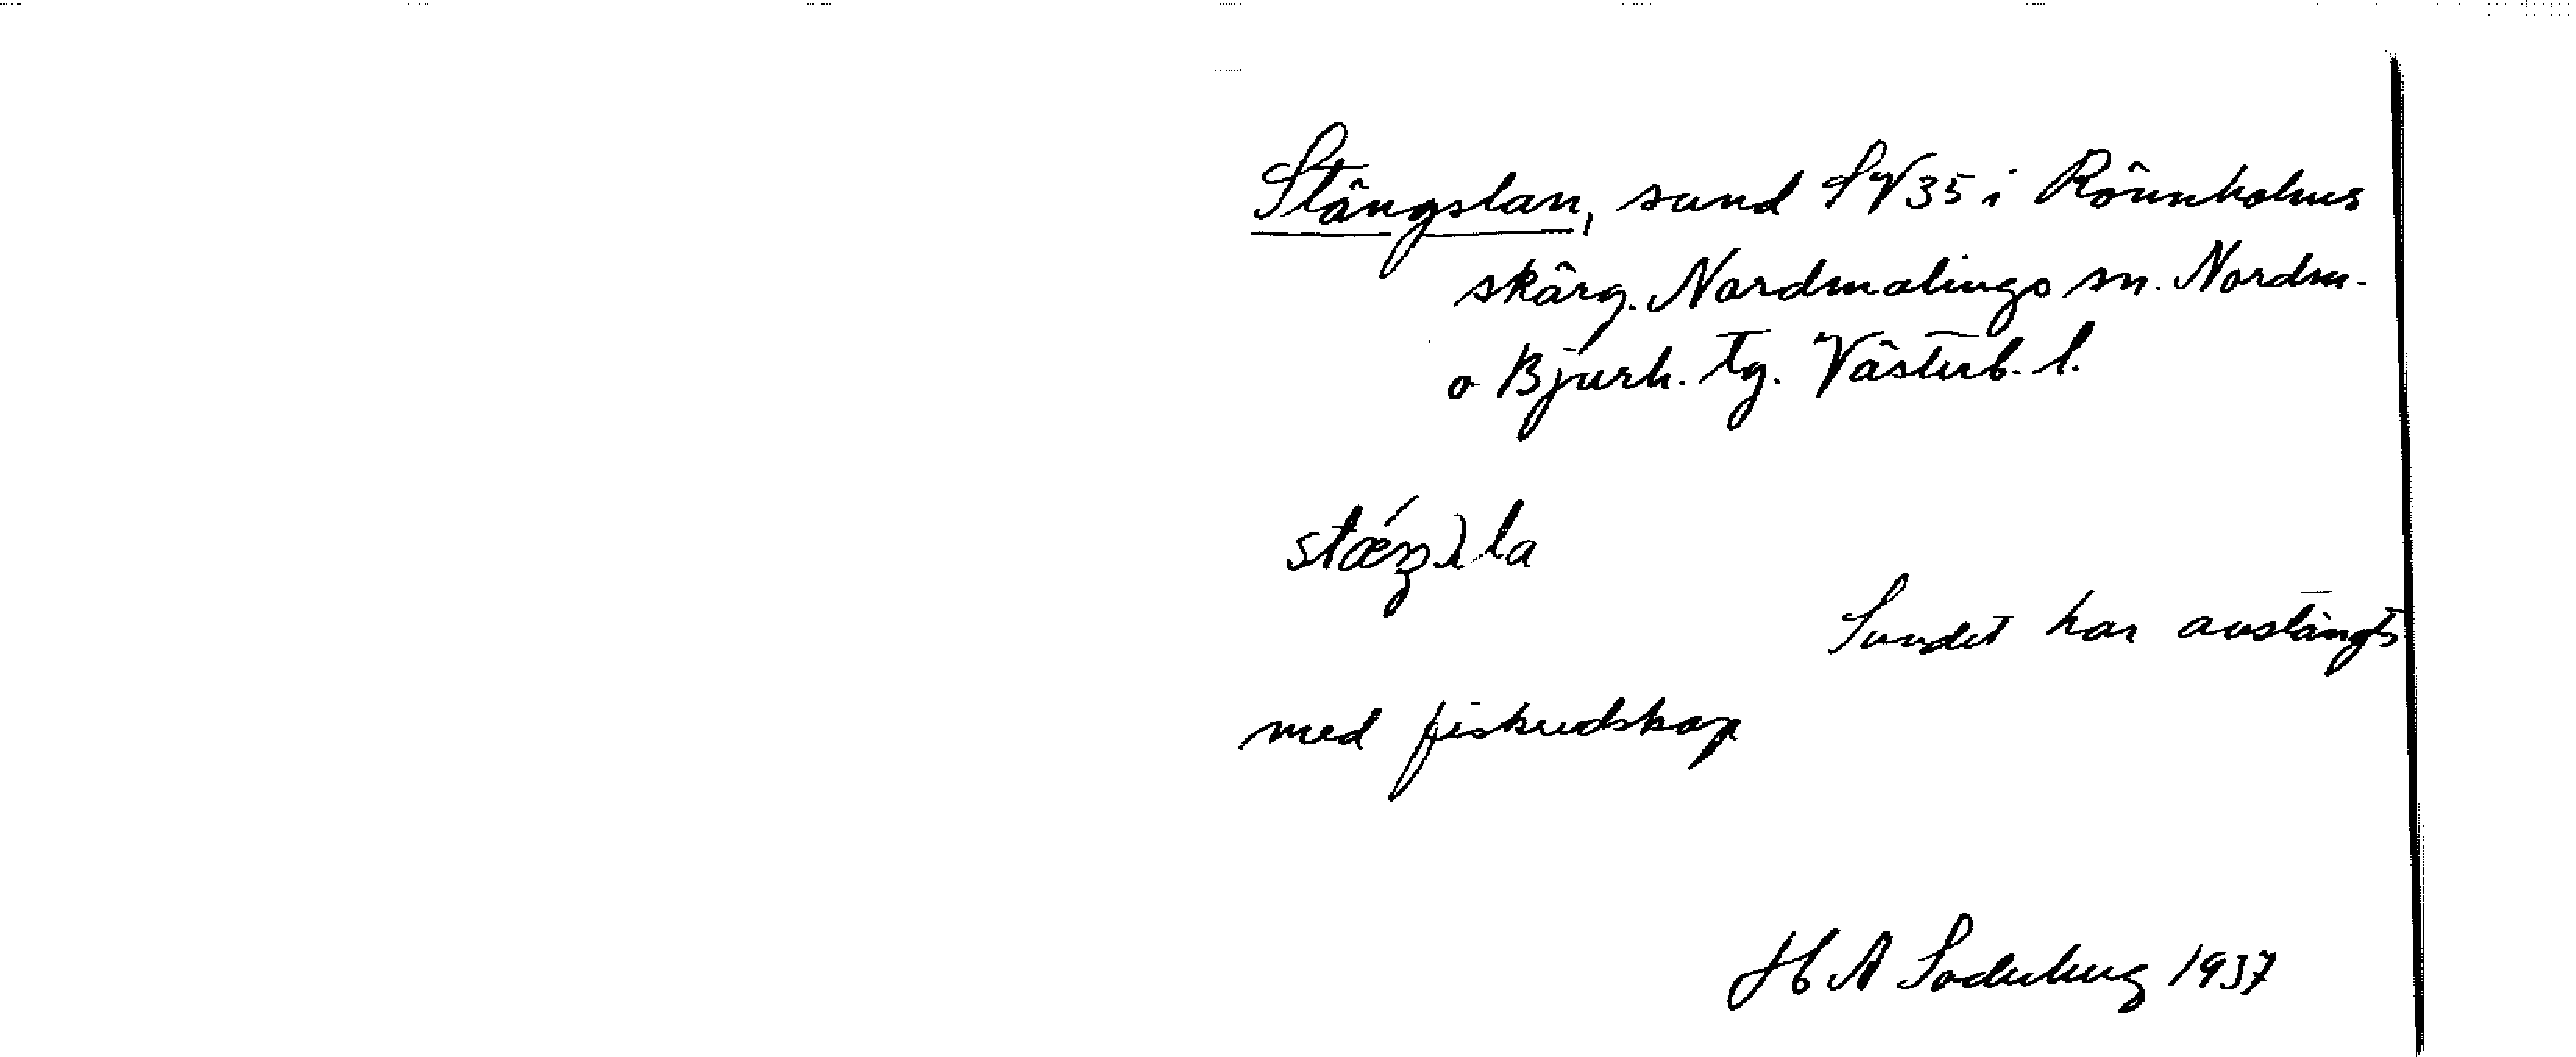 Stängslan, sund SV 35 i Rönnholms
skärg. Nordmalings sn. Nordm.
o Bjurh. tg. Västerb. l.
Sundet har avstängts
med fiskredskap
H A Söderberg 1937